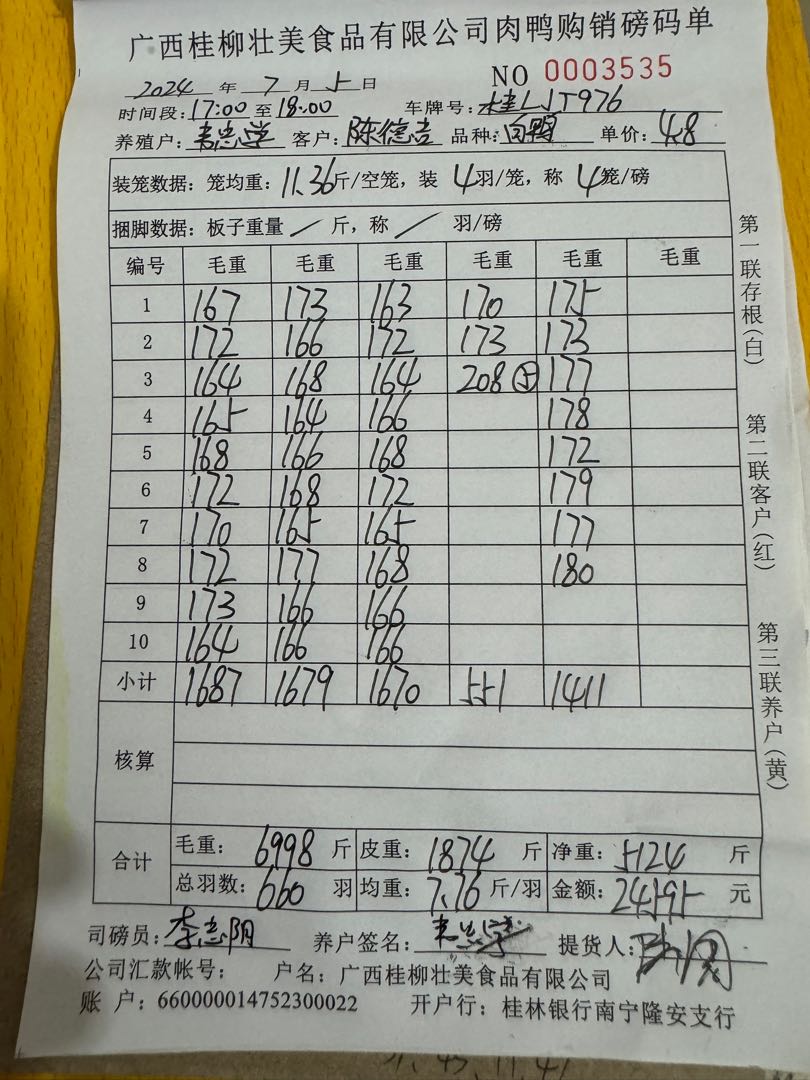 广西桂柳壮美食品有限公司肉鸭购销磅码单
2024 年 7 月 5 日 NO 0003535
时间段:17:00至18:00 车牌号:桂LJJ976
养殖户:韦忠学 客户:陈德吉 品种:白鸭 单价:4.8
装笼数据:笼均重:11.36斤/空笼,装 4羽/笼,称 4笼/磅
捆脚数据:板子重量 / 斤,称 / 羽/磅
编号 毛重 毛重 毛重 毛重 毛重 毛重
1 167 173 163 170 175
2 172 166 172 173 173
3 164 168 164 208⑤ 177
4 165 164 166 178
5 168 166 168 172
6 172 168 172 179
7 170 165 165 177
8 172 177 168 180
9 173 166 166
10 164 166 166
小计 1687 1679 1670 551 1411
核算
合计
毛重:6998 斤 皮重:1874 斤 净重:5124 斤
总羽数:660 羽 均重:7.76 斤/羽 金额:24595 元
司磅员:李志阴 养户签名:韦忠学 提货人:
公司汇款帐号: 户名:广西桂柳壮美食品有限公司
账 户:660000014752300022 开户行:桂林银行南宁隆安支行
第一联存根(白)
第二联客户(红)
第三联养户(黄)